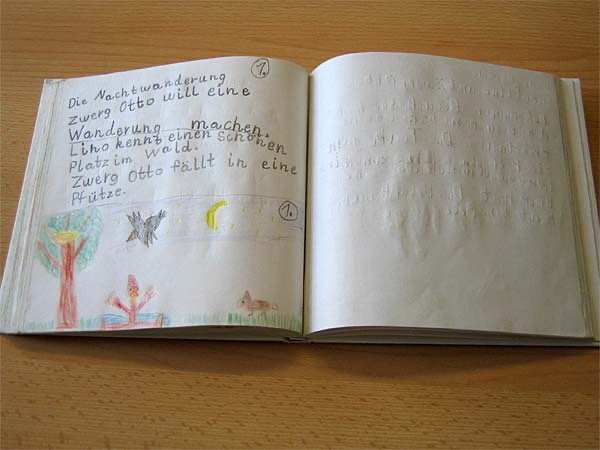 1.
Die Nachtwanderung
Zwerg Otto will eine
Wanderung machen.
Lino kennt einen Schönen
Platz im Wald.
Zwerg Otto fällt in eine
Pfütze.
1.